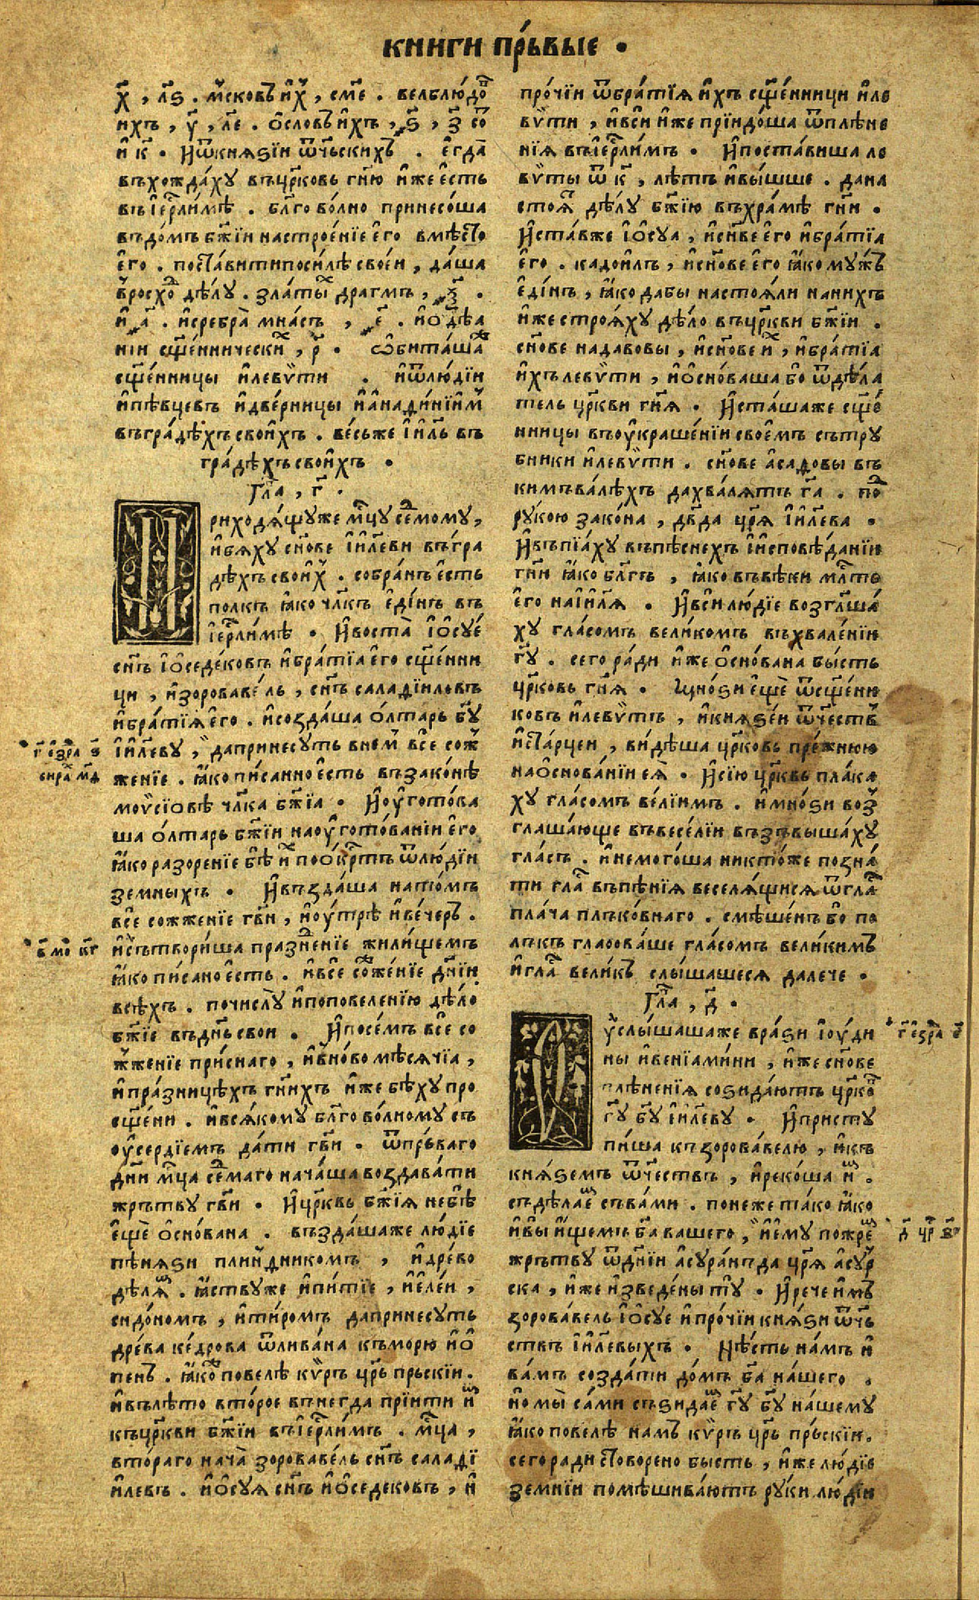 книги пр́ьвые •
х҃, л҃ѕ. м҃сковъ и҆х, сме. велблюдо
ихъ, у҃, ле. ѻсловъ и҆хъ, ѕ҃, з҃ со
и҆ к҃. И҆ѿкнꙗѕіи ѿч҃ьскихъ. е҆гда
въхождаху въцр҃ковь гн҃ю и҆же е҆сть
въіер҃лимѣ. бл҃го волно принесоша
въдомъ бж҃іи настроеніе е҆го вмѣсто
е҆го. поставитипосилѣ своеи, даша
златы драгмъ,
и҆ а҃. и҆сребра мнасъ, е҃. и҆одѣа
ніи сщ҃еннически, р҃. ѡбиташа
сщ҃енницы и҆левѵти. и҆ѿлюдіи
и҆пѣвцевъ и҆дверницы и҆анадинїим
въградѣхъ своихъ. весьже і҆и҃ль въ
градѣхъ своихъ •
Гла, г҃.
риходѧщуже мц҃у се҃мому,
и҆бѧху сн҃ове і҆и҃леви въгра
дѣхъ свои҆х. собранъ е҆сть
полкъ ꙗ҆ко чл҃къ е҆динъ въ
і҆ер҃лимѣ. И҆воста і҆ѻсуе
сн҃ъ і҆ѻседековъ и҆братїа е҆го сщ҃енни
ци, и҆зоровавель, сн҃ъ саладїиловъ
и҆братїѧ е҆го. и҆создаша ѻлтарь бг҃у
і҆и҃леву, дапринесуть внем все сож
г҃ е҆зра ѕ҃
жение. ꙗ҆ко писанно е҆сть възаконѣ
сира мѳ
моѵсіовѣ чл҃ка бж҃іа. И҆оуготова
ша ѻлтарь бж҃іи наоуготованіи е҆го
ꙗ҆ко разорение бѣ и҆м поокр҃тъ ѿлюдіи
земныхъ. И҆въздаша натомъ
все сожжение гв҃и, и҆оутрѣ и҆вечеръ.
и҆сътвориша празнение жилищемъ
ꙗ҆ко писано е҆сть. и҆все сожение дн҃іи
всѣхъ. почислу и҆поповеленїю дѣло
бж҃іе въдн҃ь свои. И҆посемъ все со
жжение приснаго, и҆вново мѣсѧчїа,
и҆праздницѣхъ гн҃ихъ и҆же бѣху про
сщ҃ени. и҆всѧкому бл҃го волному съ
оусердїемъ дати гв҃и. ѿпрьваго
дн҃и мц҃а се҃маго начаша воздавати
жрътву гв҃и. И҆цр҃квь бж҃іѧ небѣ
е҆ще ѻснована. въздашаже людїе
пѣнѧѕи плиндникомъ, и҆древо
дѣлѧ. ꙗ҆ствуже и҆питїе, и҆елеи,
сидономъ, и҆тиромъ дапринесуть
древа кедрова ѿливана къморю и҆ѻ
пенъ. ꙗ҆ко повелѣ кѵръ цр҃ь прьскіи.
и҆вълѣто второе внегда прїити и҆м
къцр҃кви бж҃іи въіер҃лимъ. мц҃а,
втораго нача зоровавель сн҃ъ саладї
и҆левъ. и҆ѻсуѧ сн҃ъ и҆ѻседековъ, и҆
прочїи ѿбратїѧ и҆хъ сщ҃енници и҆ле
вѵти, и҆вси и҆же прїидоша ѿплѣне
нїѧ въіер҃лимъ. И҆поставиша ле
вѵты ѿ к҃, лѣтъ и҆вышше. дана
стоѧ дѣлу бж҃ію въхрамѣ гн҃и.
И҆ставже і҆ѻсуа, и҆сн҃ве е҆го и҆братїа
е҆го. кадоилъ, и҆сн҃ове е҆го ꙗ҆ко мужъ
е҆динъ, ꙗ҆ко дабы настоꙗли нанихъ
и҆же строѧху дѣло въцр҃кви бж҃іи.
сн҃ове надавовы, и҆сн҃ове и҆х, и҆братїа
и҆хъ левѵти, и҆ѻсноваша бо ѿдѣла
тель цр҃кви гн҃ѧ. И҆сташаже сщ҃е
нницы въоукрашенїи своемъ сътру
бники и҆левѵти. сн҃ове асадовы въ
кимъвалѣхъ дахвалѧтъ гд҃а. по
рукою закона, дв҃да цр҃ѧ і҆и҃лева.
И҆въпїаху въпѣснехъ і҆исповѣданіи
гн҃и ꙗ҆ко бл҃гъ, ꙗ҆ко въвѣки мл҃сть
е҆го наі҆и҃лѧ. И҆вси людїе возгл҃ша
ху гласомъ великомъ въхваленїи
гд҃у. сего ради и҆же ѻснована бысть
цр҃ковь гн҃ѧ. Мноѕи е҆ще ѿсщ҃енни
ковъ и҆левѵтъ, и҆кнѧѕеи ѿч҃ествъ
и҆старцеи, видѣша цр҃ковь прежнюю
наѻснованїи еѧ. И҆сїю цр҃квь плака
ху гласомъ велїимъ. и҆мноѕи воз
глашающе въвеселїи възъвышаху
гласъ. и҆немогоша никтоже позна
ти гла въпѣнїѧ веселѧщисѧ ѿгла
плача плъковнаго. смѣшенъ бо по
лъкъ гласоваше гласомъ великимъ
и҆гла великъ слышашесѧ далече •
Гла, д҃.
услышашаже враѕи і҆ѹди
г҃ е҆зра е҃
ны и҆венїамини, и҆же сн҃ове
плѣненїѧ соѕидаютъ цр҃ко
гд҃у бг҃у і҆и҃леву. И҆присту
пиша къзоровавелю, и҆къ
кнѧѕемъ ѿч҃ествъ, и҆рекоша и҆м.
съдѣлае съвами. понеже тако ꙗ҆ко
и҆вы и҆щемъ бг҃а вашего, и҆ему пожре
жрътву ѿдн҃іи асурандда цр҃ѧ асур
ска, и҆же и҆зведены ту. И҆рече и҆мъ
зоровавель і҆ѻсуе и҆прочїи кнѧѕи ѿч҃ь
ствъ і҆и҃левыхъ. Нѣсть намъ и҆
вамъ создати домъ бг҃а нашего.
но мы сами съѕидае гд҃у бг҃у нашему
ꙗ҆ко повелѣ намъ кѵръ цр҃ь прьскіи.
сего ради створено бысть, и҆же людїе
земнїи помѣшиваютъ руки людїи